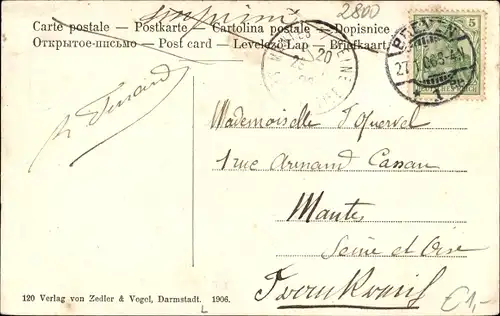 imprimé
2800
Carte postale — Postkarte — Cartolina postale — Dopisnice
Открытое-письмо — Post card — Levelező-Lap — Briefkaart
5
BREMEN
1
20
Mademoiselle J Quervel
1 rue Armand Cassan
Mantes
Seine et Oise
Frankreich
120 Verlag von Zedler & Vogel, Darmstadt. 1906.
L
€1,-